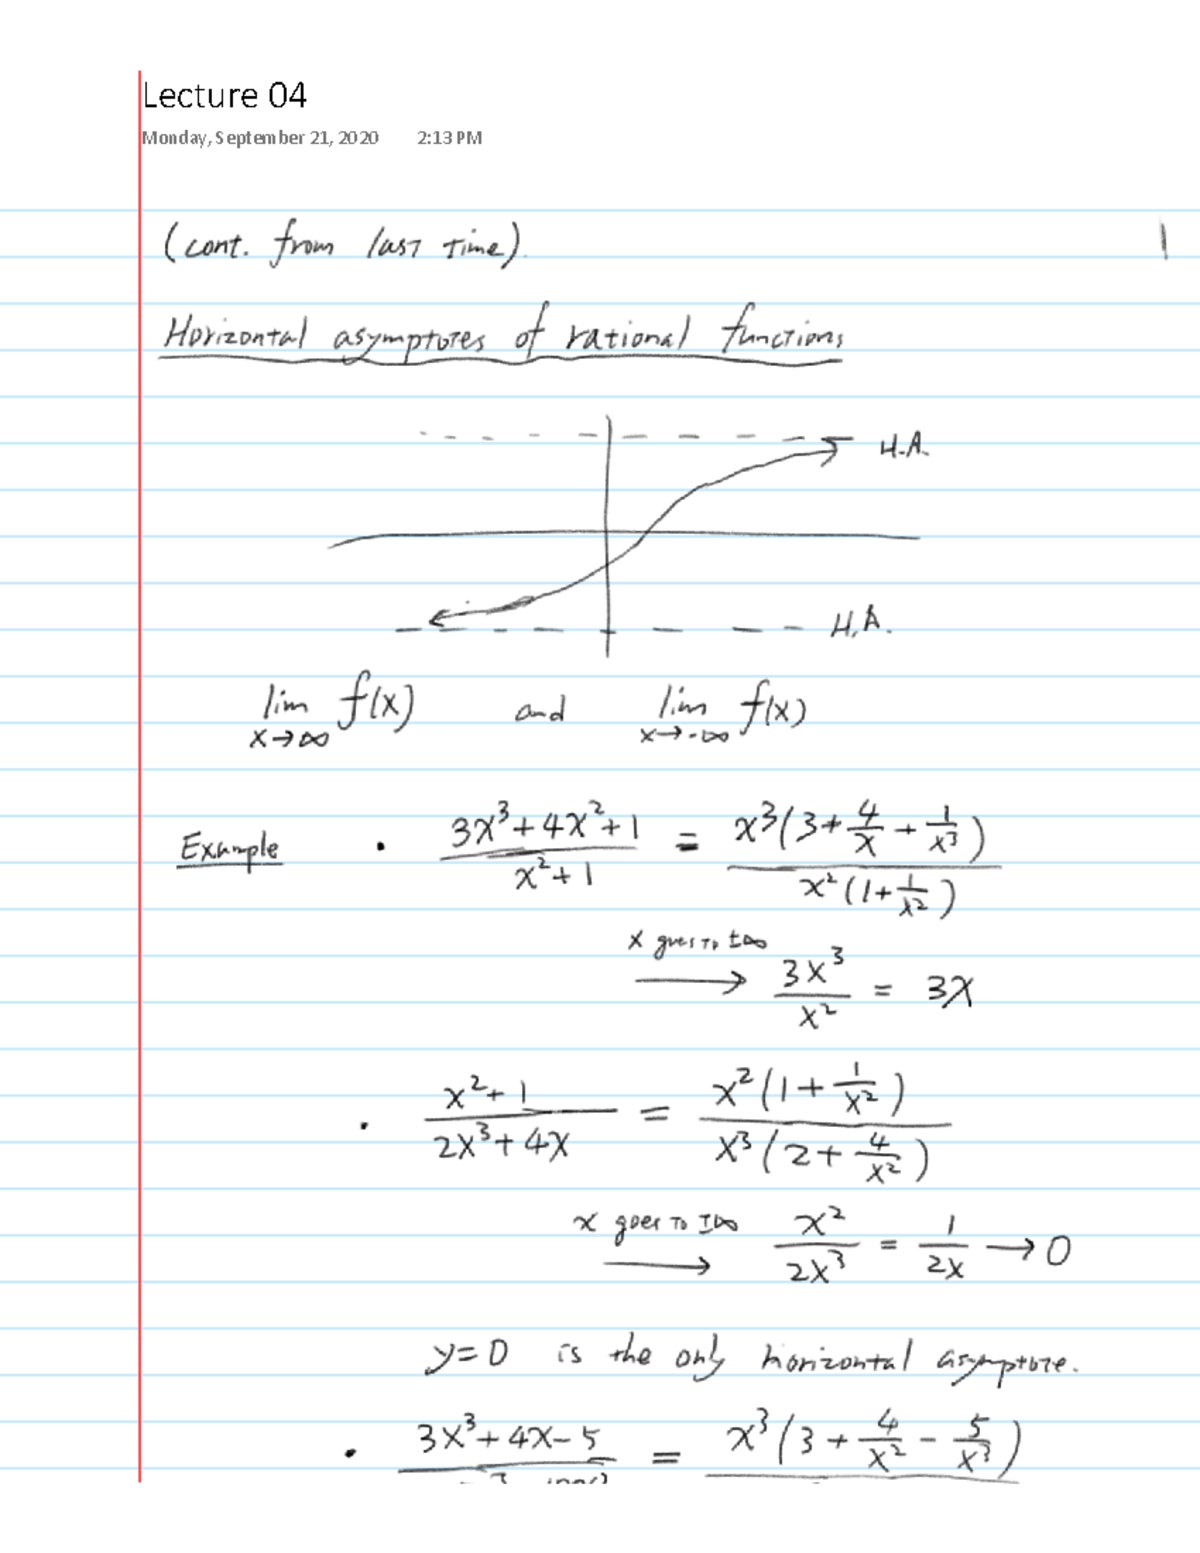 Lecture 04
Monday, September 21, 2020 2:13 PM
(cont. from last time). 1
Horizontal asymptotes of rational functions
H.A.
H.A.
lim x→∞ f(x) and lim x→-∞ f(x)
Example • (3x³+4x²+1)/(x²+1) = x³(3+4/x+1/x³)/(x²(1+1/x²))
x goes to ±∞ → 3x³/x² = 3x
• (x²+1)/(2x³+4x) = x²(1+1/x²)/(x³(2+4/x²))
x goes to ±∞ → x²/(2x³) = 1/(2x) → 0
y=0 is the only horizontal asymptote.
• 3x³+4x-5 = x³(3+4/x²-5/x³)